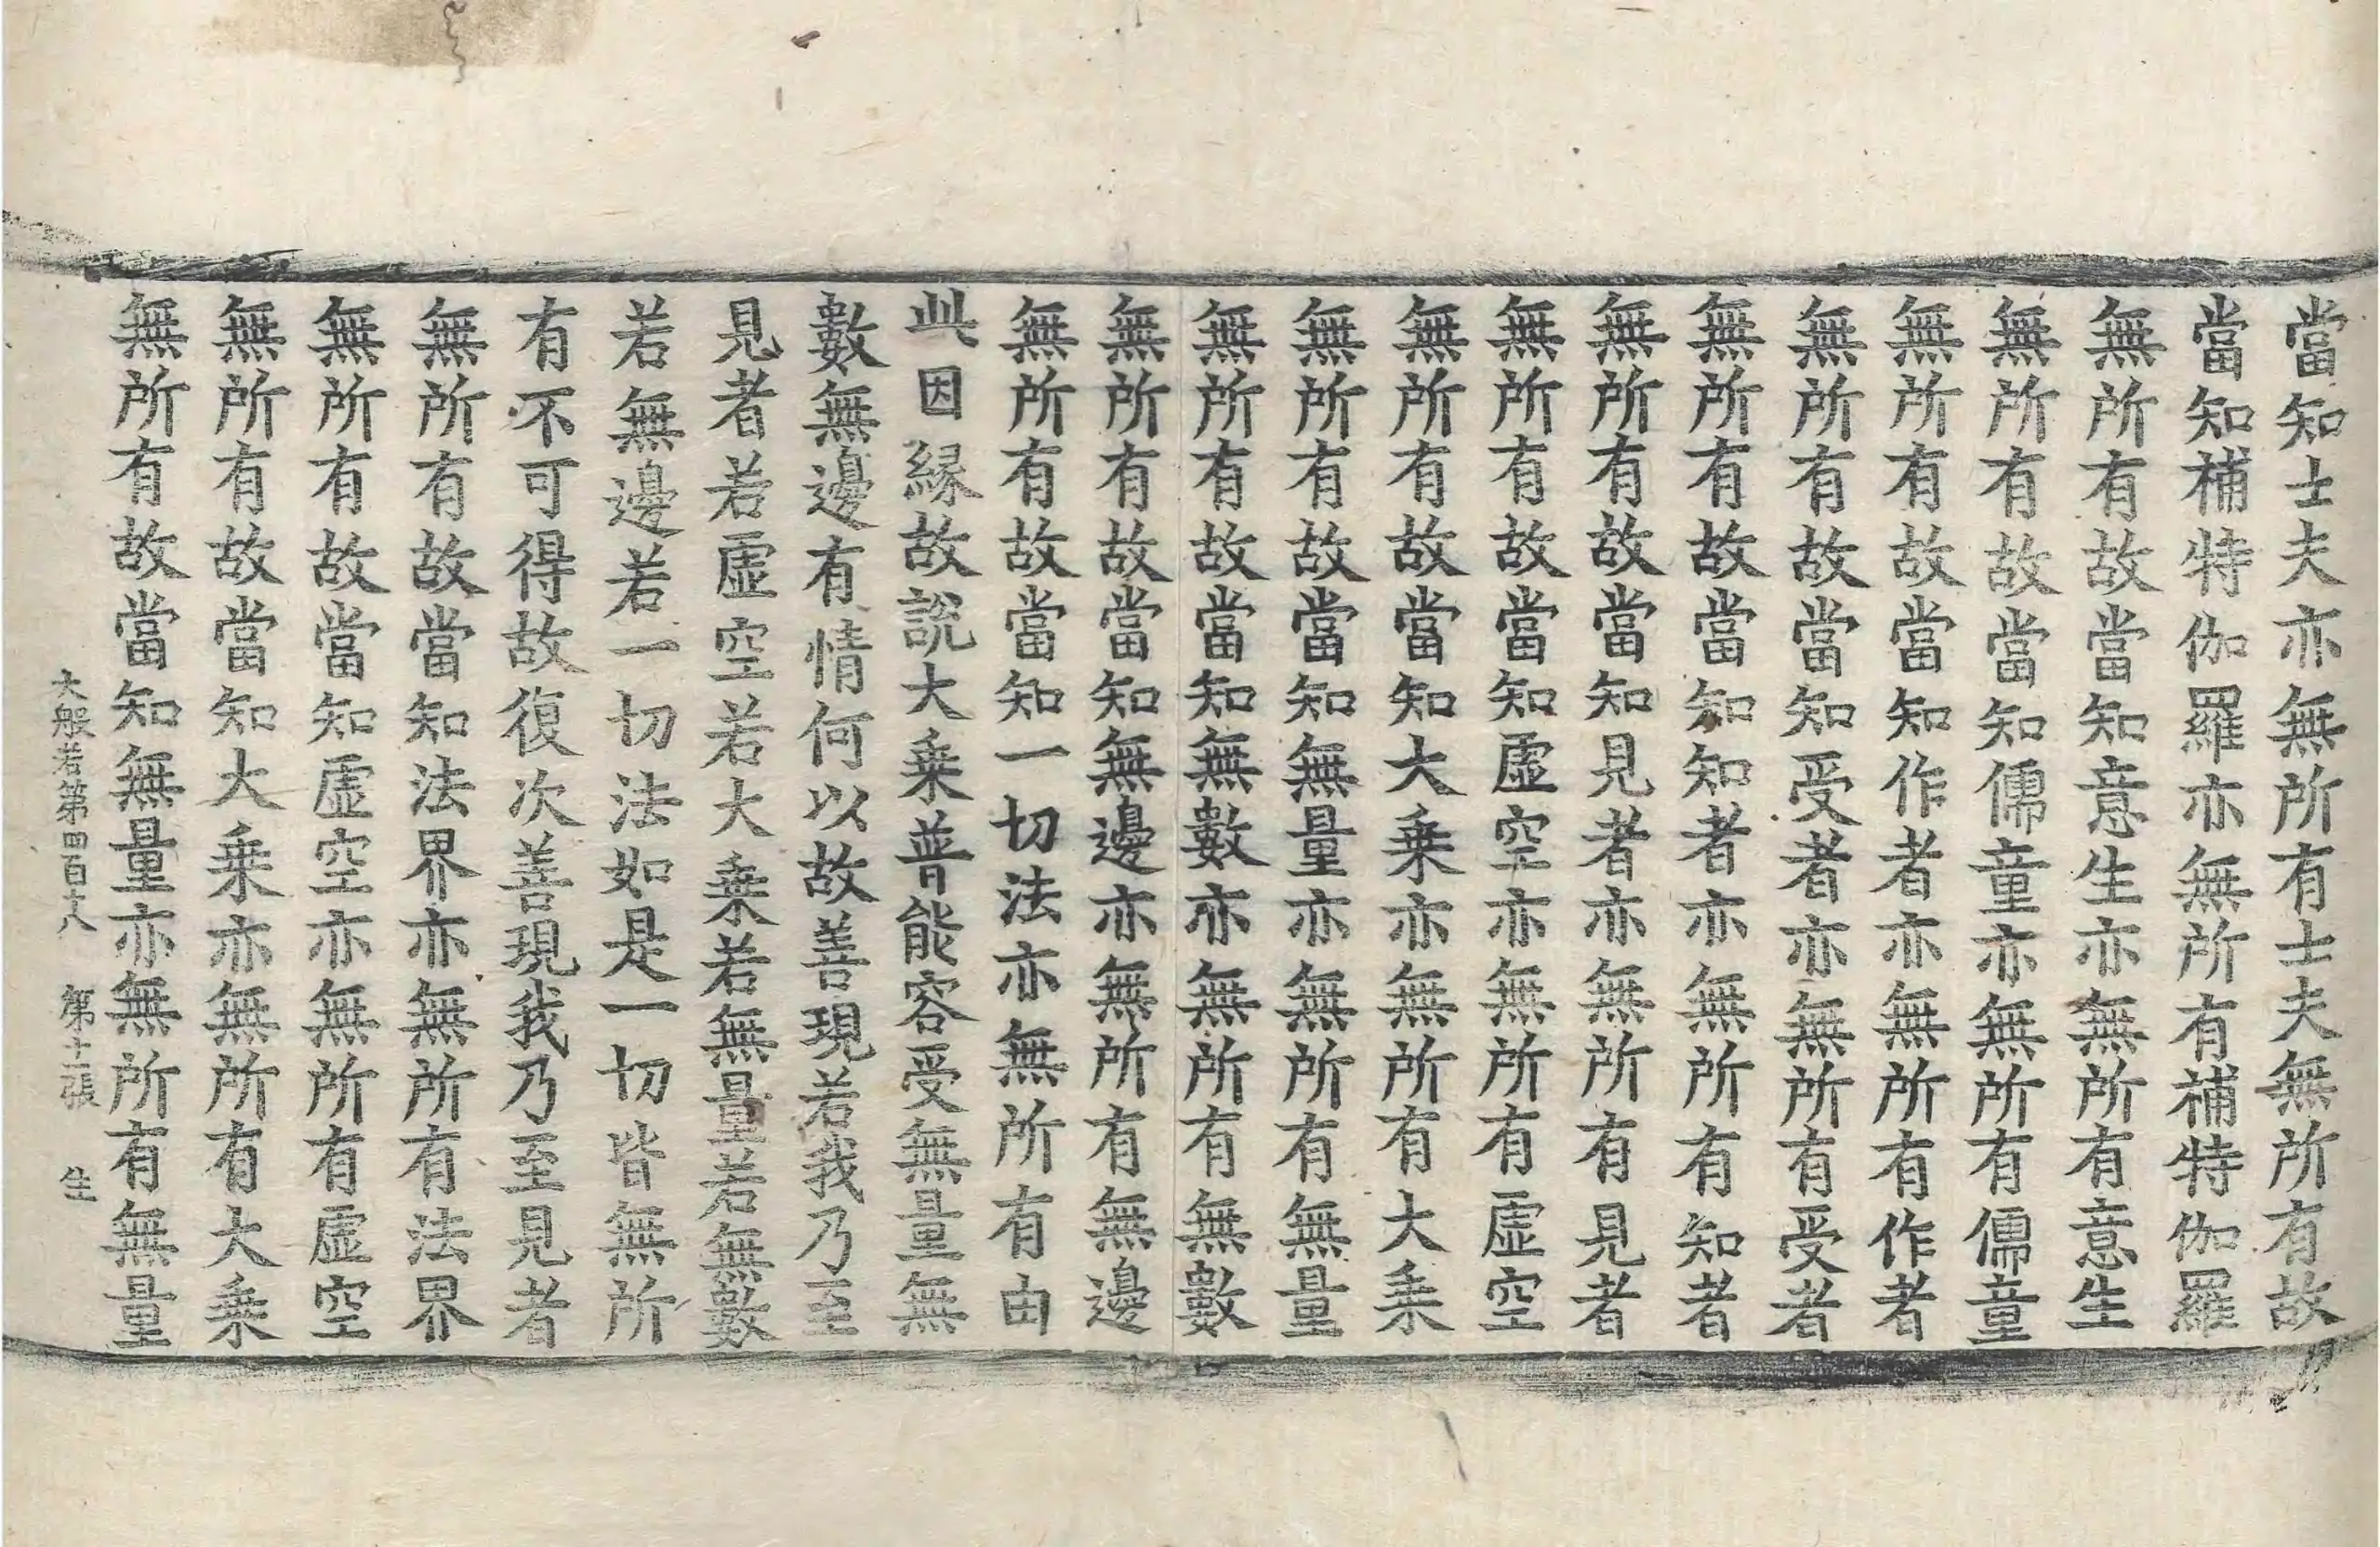 當知士夫亦無所有士夫無所有故
當知補特伽羅亦無所有補特伽羅
無所有故當知意生亦無所有意生
無所有故當知儒童亦無所有儒童
無所有故當知作者亦無所有作者
無所有故當知受者亦無所有受者
無所有故當知知者亦無所有知者
無所有故當知見者亦無所有見者
無所有故當知虛空亦無所有虛空
無所有故當知大乗亦無所有大乗
無所有故當知無量亦無所有無量
無所有故當知無數亦無所有無數
無所有故當知無邊亦無所有無邊
無所有故當知一切法亦無所有由
此因縁故說大乗普能容受無量無
數無邊有情何以故善現若我乃至
見者若虛空若大乗若無量若無數
若無邊若一切法如是一切皆無所
有不可得故復次善現我乃至見者
無所有故當知法界亦無所有法界
無所有故當知虛空亦無所有虛空
無所有故當知大乗亦無所有大乗
無所有故當知無量亦無所有無量
大般若第四百十八 第十二張 生